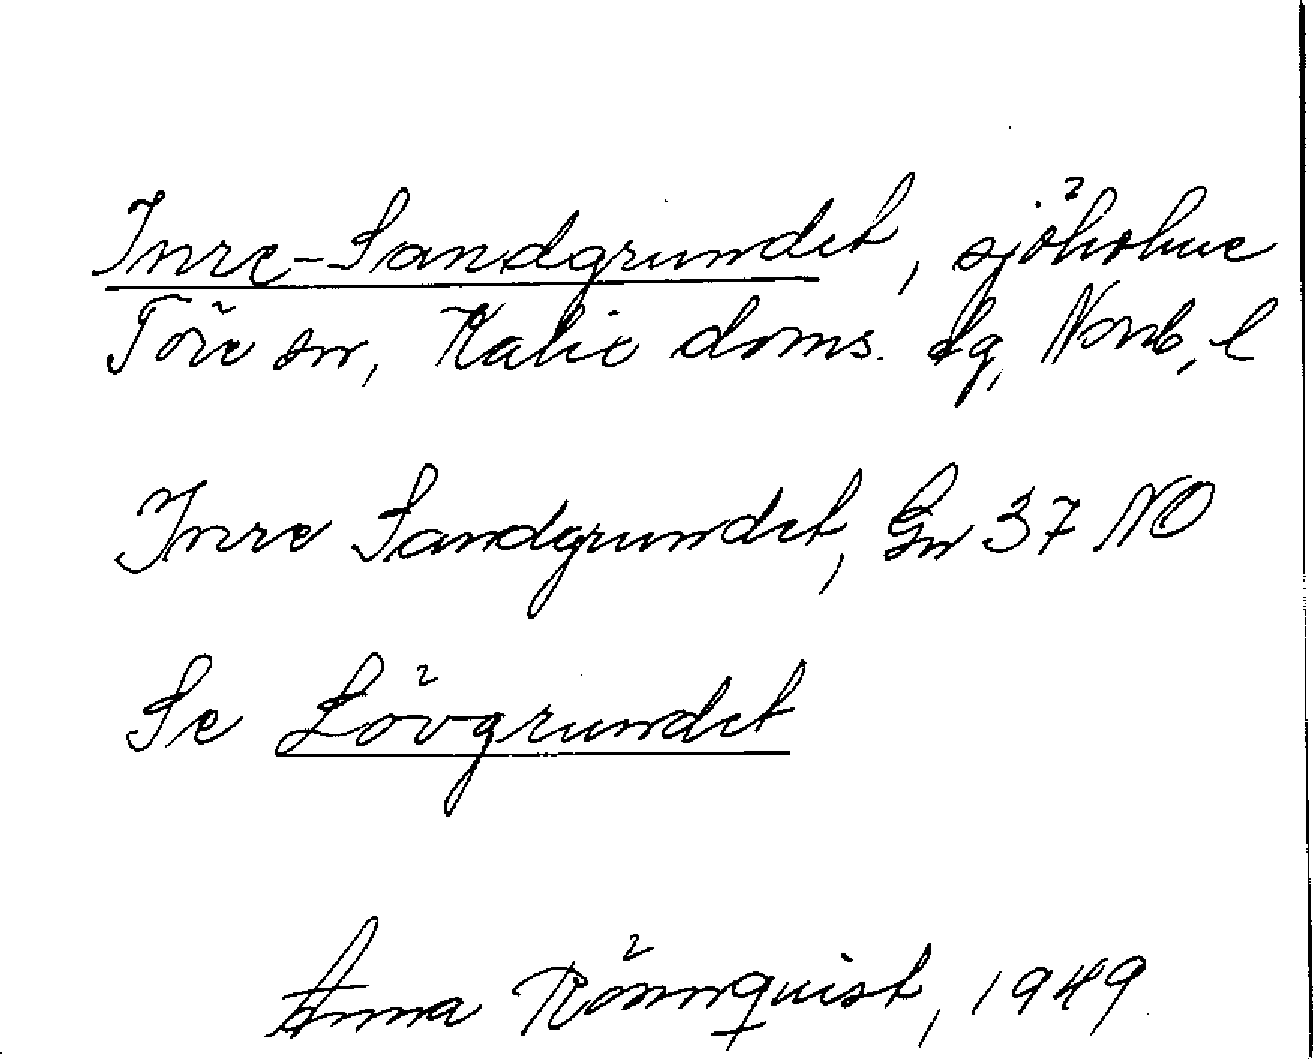 Inre-Sandgrundet, sjökskue
Töre sn, Kalix doms. lg, Norrb, l
Inre Sandgrundet, Gn 37 NO
Se Lövgrundet
Anna Rönnquist, 1949